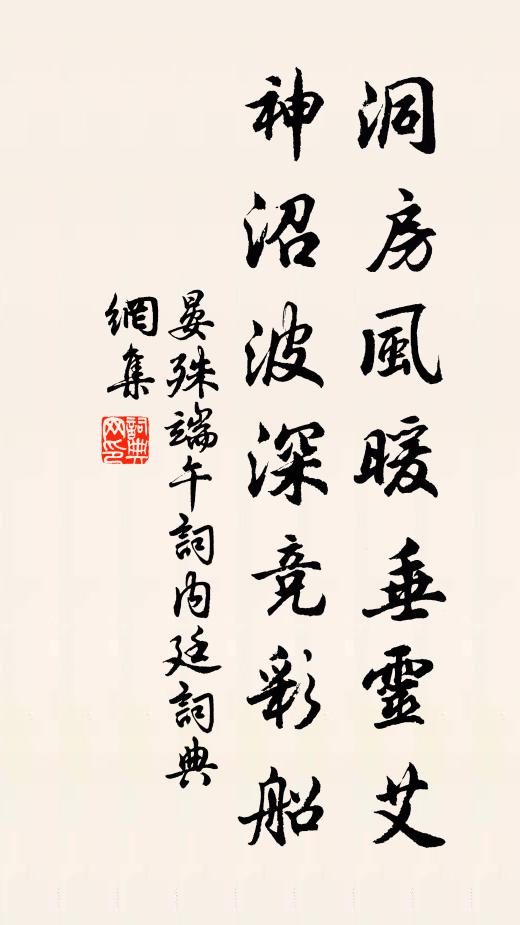 洞房風暖垂靈艾
神沼波深競彩船
晏殊端午詞内廷詞典
網集
詞典
网印